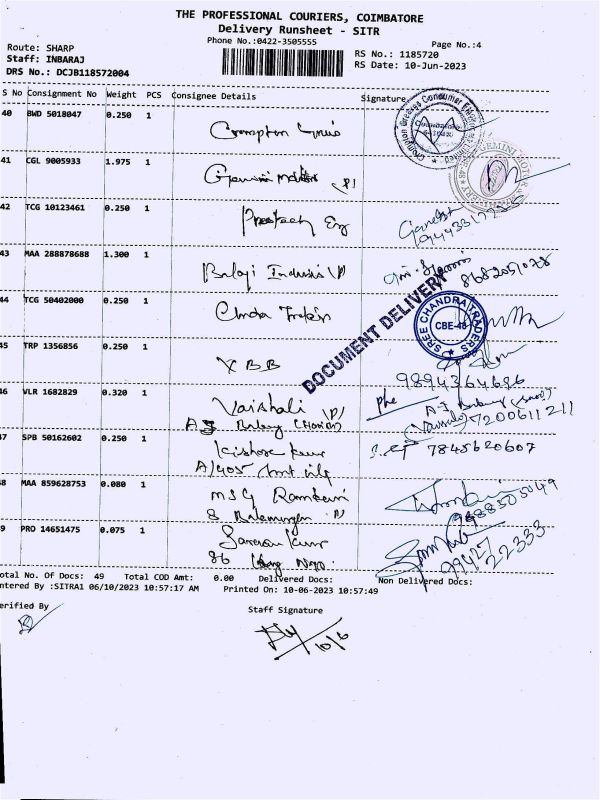 THE PROFESSIONAL COURIERS, COIMBATORE
Delivery Runsheet - SITR
Phone No.:0422-3505555
Page No.:4
Route: SHARP
Staff: INBARAJ
DRS No.: DCJB118572004
RS No.: 1185720
RS Date: 10-Jun-2023
S No Consignment No Weight PCS Consignee Details Signature
40 BWD 5018047 0.250 1
Crompton
41 CGL 9005933 1.975 1
Gemini Motors (P)
42 TCG 10123461 0.250 1
Protech Eng
Ganesh
43 MAA 288878688 1.300 1
Balaji Industris (P)
8682051078
44 TCG 50402000 0.250 1
DOCUMENT DELIVERY
SREE CHANDRA TRADERS
CBE-48
45 TRP 1356856 0.250 1
9894364696
46 VLR 1682829 0.320 1
Vaishali (P)
7200611211
47 SPB 50162602 0.250 1
Kishore Kumar
A/405
7845620607
48 MAA 859628753 0.080 1
MSG
9488505049
49 PRO 14651475 0.075 1
Saravana Kumar
86
99427
22333
otal No. Of Docs: 49 Total COD Amt: 0.00 Delivered Docs: Non Delivered Docs:
ntered By :SITRA1 06/10/2023 10:57:17 AM Printed On: 10-06-2023 10:57:49
erified By
Staff Signature
10/6